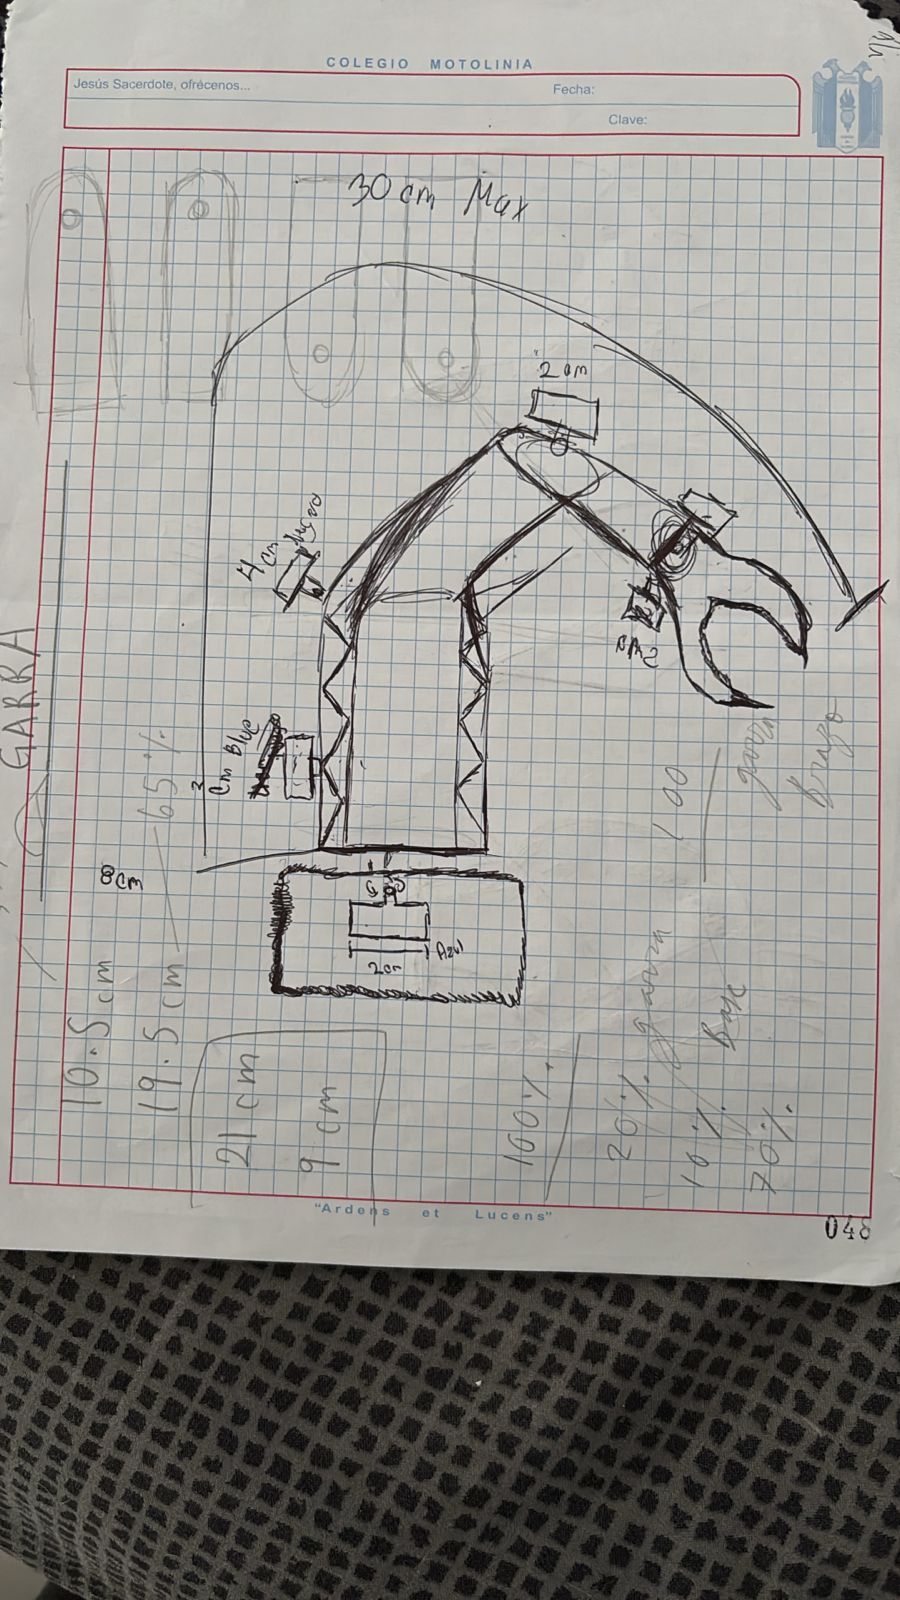 COLEGIO MOTOLINIA
Jesús Sacerdote, ofrécenos...
Fecha:
Clave:
30 cm Max
2 cm
4 cm
GARRA
cm Blue
8 cm
2 cm
Azul
10.5 cm
19.5 cm 65%
21 cm
9 cm
100%
20% garra
10% Base
70%
100
garra
Brazo
"Ardens et Lucens"
340